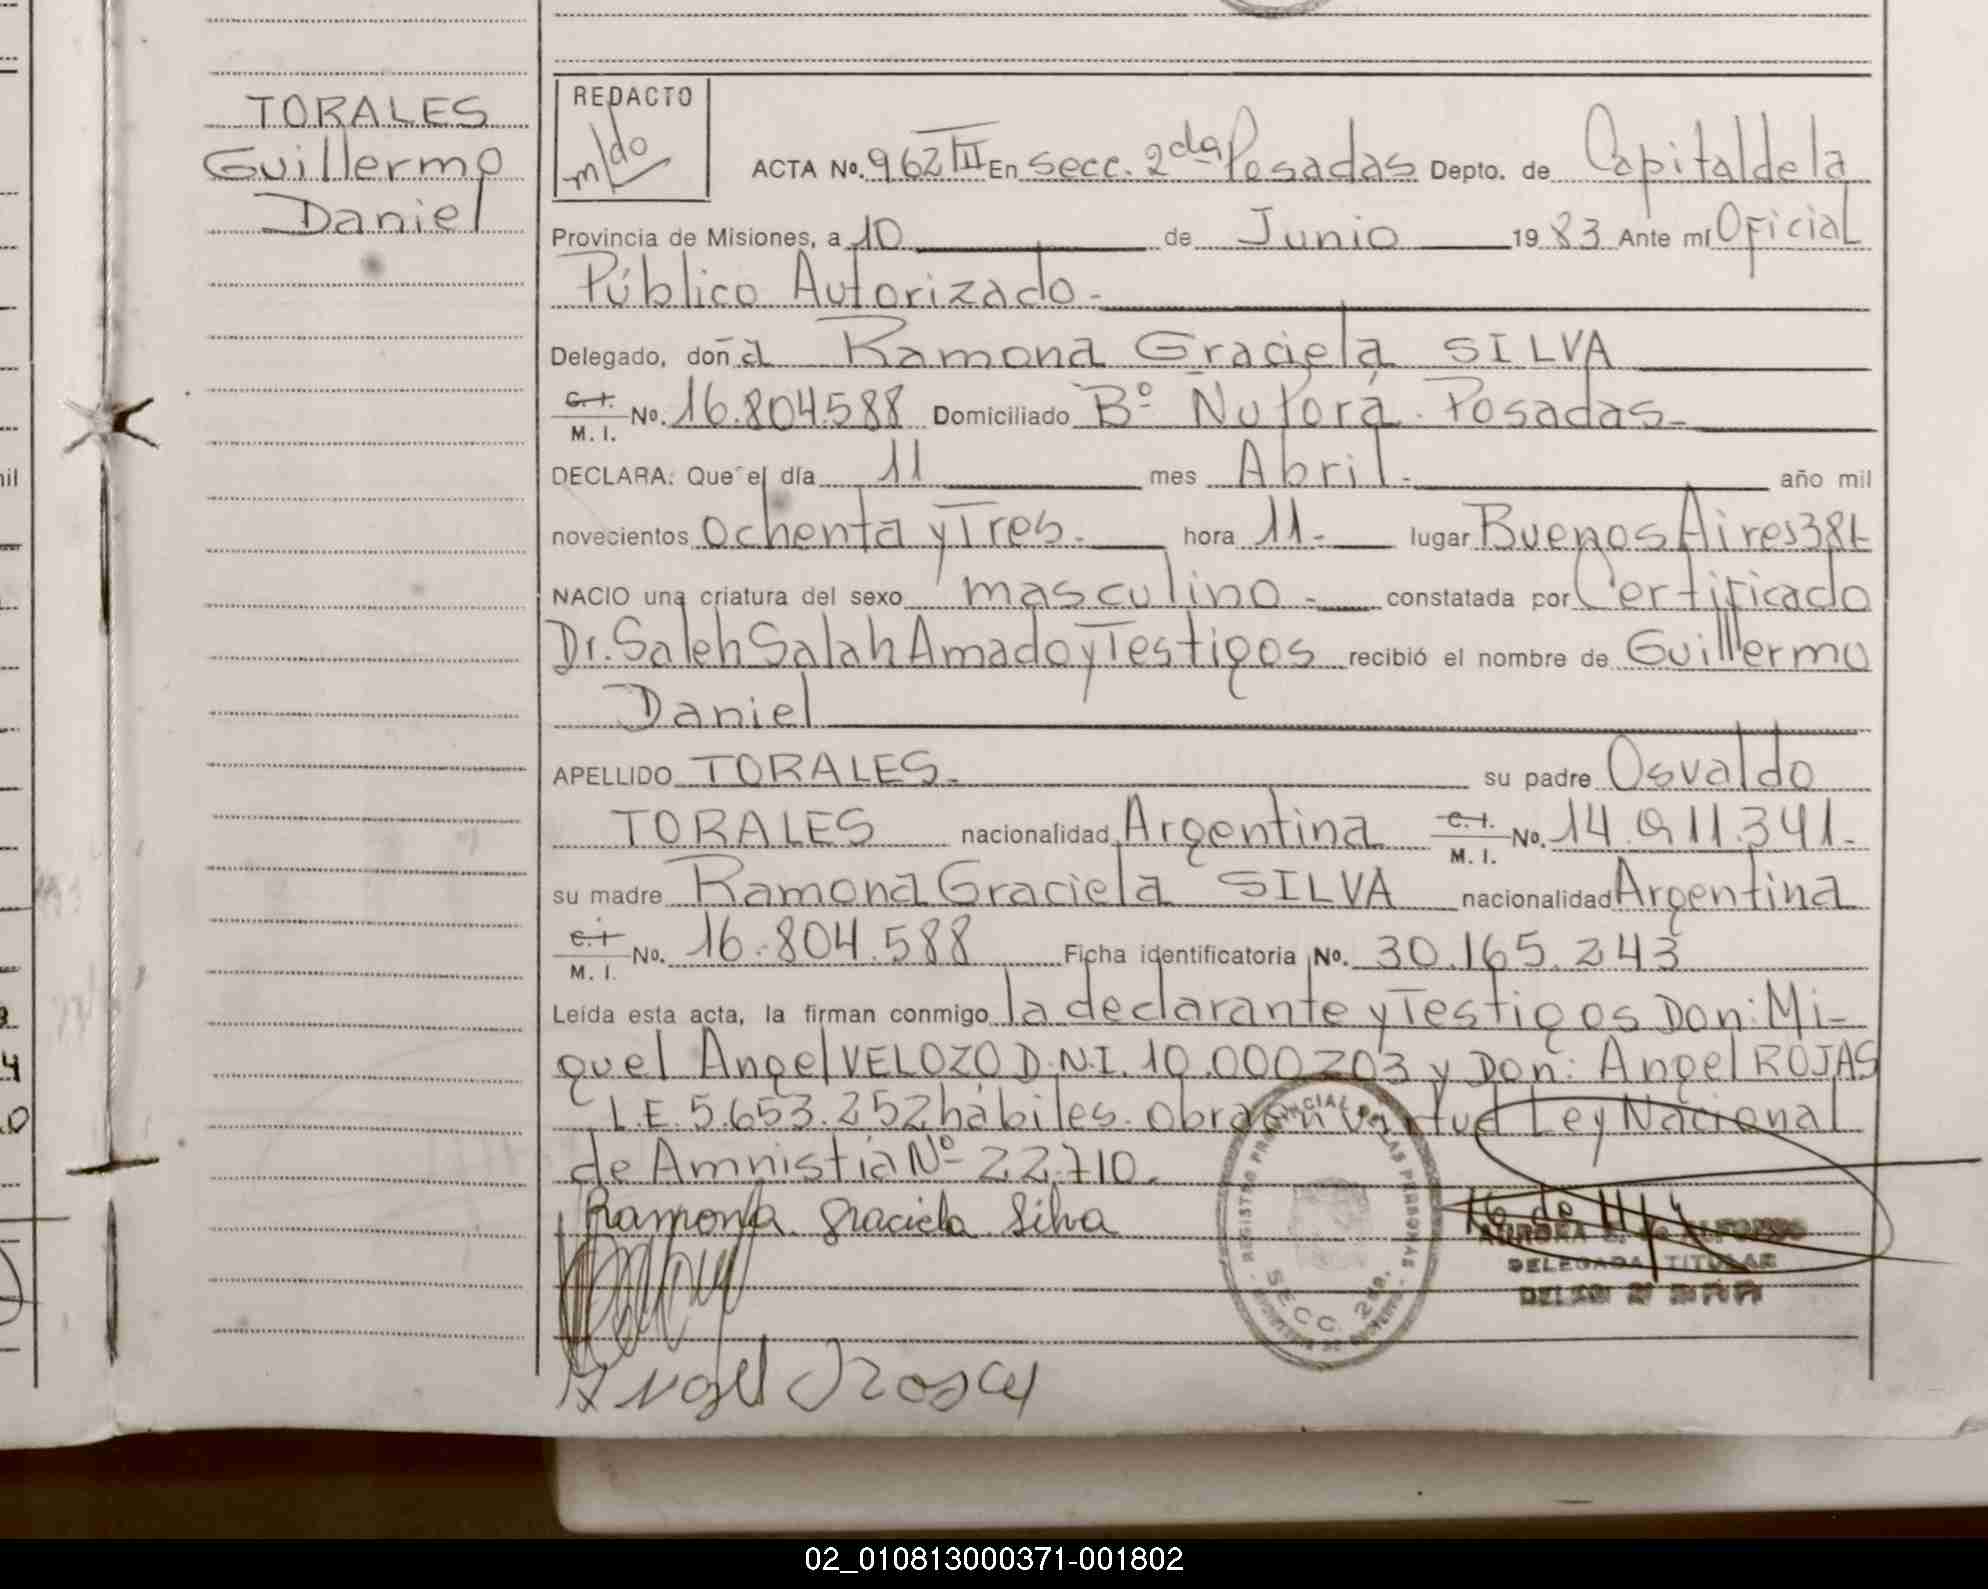 TORALES
Guillermo
Daniel
REDACTO
ACTA No. 962 TIII En secc. 2da Posadas Depto. de Capital de la
Provincia de Misiones, a 10 de Junio 1983 Ante mí Oficial
Público Autorizado.-
Delegado, doña Ramona Graciela SILVA
C.I. M.I. No. 16.804.588 Domiciliado Bº Ñu Porá. Posadas.-
DECLARA: Que el día 11 mes Abril.- año mil
novecientos ochenta y Tres.- hora 11.- lugar Buenos Aires 381
NACIO una criatura del sexo masculino.- constatada por Certificado
Dr. Saleh Salah Amado y Testigos recibió el nombre de Guillermo
Daniel
APELLIDO TORALES.- su padre Osvaldo
TORALES nacionalidad Argentina C.I. M.I. No. 14.911.341.-
su madre Ramona Graciela SILVA nacionalidad Argentina
C.I. M.I. No. 16.804.588 Ficha identificatoria No. 30.165.243
Leída esta acta, la firman conmigo la declarante y Testigos Don: Mi-
guel Angel VELOZO D.N.I. 10.000203 y Don: Angel ROJAS
L.E. 5.653.252 hábiles. Obra en virtud Ley Nacional
de Amnistía Nº 22.710.
Ramona Graciela Silva
REGISTRO PROVINCIAL DE LAS PERSONAS
SECC. 2da.
DELEGADA TITULAR
Angel
02_010813000371-001802